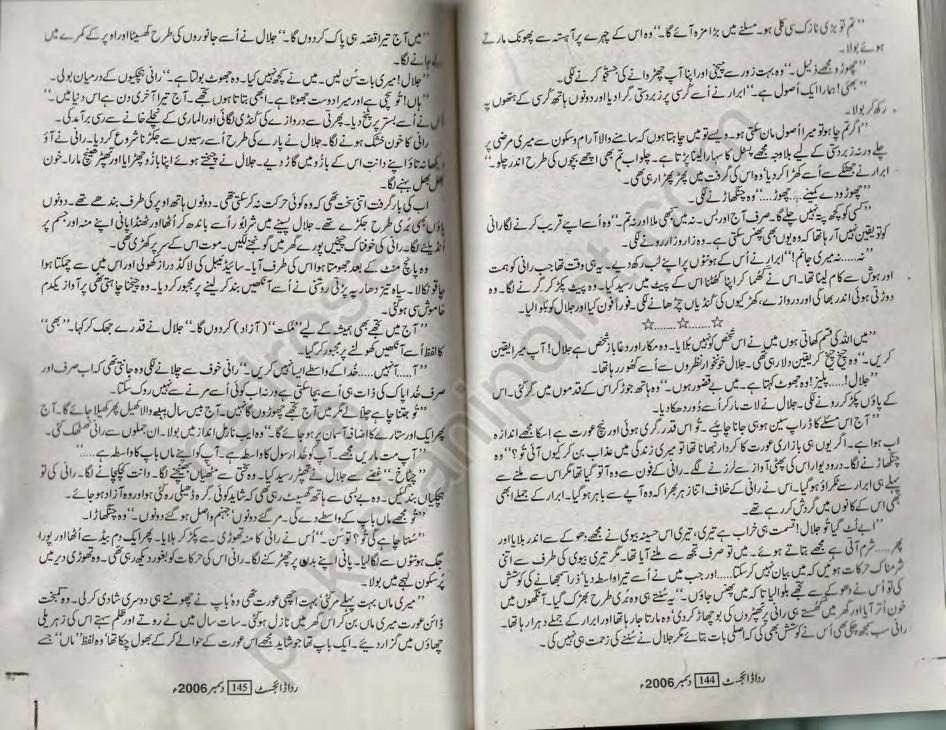 "تم تو بڑی نازک سی کلی ہو۔ مسلنے میں بڑا مزہ آئے گا۔" وہ اس کے چہرے پر آہستہ سے پھونک مارتے
ہوئے بولا۔
"چھوڑو مجھے ذلیل۔" وہ بہت زور سے چیخی اور اپنا آپ چھڑوانے کی سعی کرنے لگی۔
"بھئی! ہمارا ایک اصول ہے۔" ابرار نے اُسے کرسی پر زبردستی گرا دیا اور دونوں ہاتھ کرسی کے ہتھوں پہ
رکھ کر بولا۔
"اگر تم چاہو تو میرا اُصول مان سکتی ہو۔ ویسے تو میں چاہتا ہوں کہ سامنے والا آرام و سکون سے میری مرضی پر
چلے ورنہ زبردستی کے لیے بلاوجہ مجھے پسٹل کا سہارا لینا پڑتا ہے۔ چلو اب تم بھی اچھے بچوں کی طرح اندر چلو۔"
ابرار نے جھٹکے سے اُسے کھڑا کر دیا' وہ اس کی گرفت میں پھڑپھڑا رہی تھی۔
"چھوڑ دے کمینے..... چھوڑ....." وہ چنگھاڑنے لگی۔
"کسی کو کچھ پتہ نہیں چلے گا۔ صرف آج اور بس۔ نہ میں بھی ملا اور نہ تم۔" وہ اُسے اپنے قریب کرنے لگا رانی
کو تو یقین نہیں آ رہا تھا کہ وہ یوں بھی پھنس سکتی ہے۔ وہ زار و زار رونے لگی۔
"نہ..... نہ میری جانم!" ابرار نے اس کے ہونٹوں پر اپنے لب رکھ دیے۔ یہ ہی وقت تھا جب رانی کو ہمت
اور ہوش سے کام لینا تھا۔ اس نے گھما کر اپنا گھٹنا اس کے پیٹ میں رسید کیا۔ وہ پیٹ پکڑ کر کرنے لگا۔ وہ
دوڑتی ہوئی اندر بھاگی اور دروازے، کھڑکیوں کی کنڈیاں چڑھانے لگی۔ فوراً فون کیا اور جلال کو بلوا لیا۔
☆.....☆.....☆
"میں اللہ کی قسم کھاتی ہوں میں نے اس شخص کو نہیں بلایا۔ وہ مکار اور دغا باز شخص ہے جلال! آپ میرا یقین
کریں۔" وہ چیخ چیخ کر یقین دلا رہی تھی۔ جلال خونخوار نظروں سے اُسے گھور رہا تھا۔
"جلال!..... پلیز! وہ جھوٹ کہتا ہے۔ میں بے قصور ہوں۔" وہ ہاتھ جوڑ کر اس کے قدموں میں گر گئی۔ اس
کے پاؤں پکڑ کر رونے لگی۔ جلال نے لات مار کر اُسے دُور دھکا دیا۔
"آج اس مسئلے کا ڈراپ سین ہو ہی جانا چاہئے۔ تُو اس قدر گری ہوئی اور نیچ عورت ہے اِسکا مجھے اندازہ
اب ہوا ہے۔ اگر یوں ہی بازاری عورت کا کردار نبھانا تھا تو میری زندگی میں عذاب بن کر کیوں آئی تُو؟" وہ
چنگھاڑنے لگا۔ در و دیوار اس کی پھٹی آواز سے لرزنے لگے۔ رانی کے فون سے وہ آ تو گیا تھا مگر اس سے ملنے سے
پہلے ہی ابرار سے ٹکراؤ ہو گیا۔ اس نے رانی کے خلاف اتنا زہر بھرا کہ وہ آپے سے باہر ہو گیا۔ ابرار کے جملے ابھی
بھی اس کے کانوں میں گردش کر رہے تھے۔
"ابے لُٹ گیا تُو جلال! قسمت ہی خراب ہے تیری، تیری اس حسینہ بیوی نے مجھے دھوکے سے اندر بلایا اور
پھر..... شرم آتی ہے مجھے بتاتے ہوئے۔ میں تو صرف تجھ سے ملنے آیا تھا۔ مگر تیری بیوی کی طرف سے اتنی
شرمناک حرکات ہوئیں کہ میں بیان نہیں کر سکتا..... اور جب میں نے اسے تیرا واسطہ دیا' ذرا سمجھانے کی کوشش
کی تو اُس نے دھوکے سے تجھے بلوا لیا تاکہ میں پھنس جاؤں۔" یہ سنتے ہی وہ بُری طرح بھڑک گیا۔ آنکھوں میں
خون اُتر آیا اور گھر میں گھستے ہی رانی پر تھپڑوں کی بوچھاڑ کر دی' وہ مارتا جا رہا تھا اور ابرار کے جملے دہرا رہا تھا۔
رانی سب سمجھ چکی تھی اُس نے کوشش بھی کی کہ اصلی بات بتائے مگر جلال نے سُننے کی زحمت ہی نہیں کی۔
ردا ڈائجسٹ 144 دسمبر 2006ء
"میں آج تیرا قصہ ہی پاک کر دوں گا۔" جلال نے اُسے جانوروں کی طرح گھسیٹا اور اوپر کے کمرے میں
لے جانے لگا۔
"جلال! میری بات سُن لیں۔ میں نے کچھ نہیں کیا۔ وہ جھوٹ بولتا ہے۔" رانی ہچکیوں کے درمیان بولی۔
"ہاں! تُو سچی ہے اور میرا دوست جھوٹا ہے۔ ابھی بتاتا ہوں تجھے۔ آج تیرا آخری دن ہے اس دنیا میں۔"
اُس نے اُسے بستر پر پٹخ دیا۔ پھرتی سے دروازے کی کنڈی لگائی اور الماری کے نچلے خانے سے رسی برآمد کی۔
رانی کا خون خشک ہونے لگا۔ جلال نے پارے کی طرح اُسے رسیوں سے جکڑنا شروع کر دیا۔ رانی نے آؤ
دیکھا نہ تاؤ اپنے دانت اس کے بازو میں گاڑ دیے۔ جلال نے چیختے ہوئے اپنا بازو چھڑایا اور تھپڑ کھینچ مارا۔ خون
بھل بھل بہنے لگا۔
اب کی بار گرفت اتنی سخت تھی کہ وہ کوئی حرکت نہ کر سکتی تھی۔ دونوں ہاتھ اوپر کی طرف بندھے تھے۔ دونوں
پاؤں بھی بُری طرح جکڑے تھے۔ جلال پسینے میں شرابور اُسے باندھ کر اُٹھا اور ٹھنڈا پانی اپنے منہ اور جسم پر
انڈیلنے لگا۔ رانی کی خوفناک چیخیں پورے گھر میں گونجنے لگیں۔ موت اس کے سر پر کھڑی تھی۔
وہ پانچ منٹ کے بعد جھومتا ہوا اس کی طرف آیا۔ سائیڈ ٹیبل کی لاکڈ دراز کھولی اور اس میں سے چمکتا ہوا
چاقو نکالا۔ سیاہ تیز دھار پہ پڑتی روشنی نے اُسے آنکھیں بند کر لینے پر مجبور کر دیا۔ وہ چیخنا چاہتی تھی پر آواز یکدم
خاموش سی ہو گئی۔
"آج میں تجھے بھی ہمیشہ کے لیے "مُکت" (آزاد) کر دوں گا۔" جلال نے قدرے جھک کر کہا۔ "بھی"
کا لفظ اُسے آنکھیں کھولنے پر مجبور کر گیا۔
"آ..... آ نہیں..... خُدا کے واسطے ایسا نہیں کریں۔" رانی خوف سے چلانے لگی وہ جانتی تھی کہ اب صرف اور
صرف خُدا پاک کی ذات ہی اُسے بچا سکتی ہے ورنہ اب کوئی اُسے مرنے سے نہیں روک سکتا۔
"تُو جتنا چاہے چِلّا لے مگر میں آج تجھے چھوڑوں گا نہیں۔ آج بیس سال پہلے والا کھیل پھر کھیلا جائے گا۔ آج
پھر ایک اور ستارے کا اضافہ آسمان پر ہو جائے گا۔" وہ ایب نارمل انداز میں بولا۔ ان جملوں سے رانی ٹھٹک گئی۔
"آپ مت ماریں مجھے۔ آپ کو خُدا رسول کا واسطہ ہے۔ آپ کو اپنے ماں باپ کا واسطہ ہے....."
"چٹاخ۔" غصے سے جلال نے تھپڑ رسید کیا۔ وہ سختی سے مٹھیاں بھینچنے لگا۔ دانت کچکچانے لگا۔ رانی کی تو
ہچکیاں بند گئیں۔ وہ بے بسی سے ہاتھ گھسیٹ رہی تھی کہ شاید کوئی گرہ ڈھیلی رہ گئی ہو اور وہ آزاد ہو جائے۔
"تُو مجھے ماں باپ کے واسطے دے گی۔ مر گئے دونوں' جہنم واصل ہو گئے دونوں۔" وہ چنگھاڑا۔
"سُننا چاہے گی تُو؟ تو سُن۔" اُس نے رانی کا منہ تھوڑی سے پکڑ کر ہلایا۔ پھر ایک دم بیڈ سے اُٹھا اور پورا
جگ ہونٹوں سے لگا لیا۔ پانی اپنے بدن پر چھڑکنے لگا۔ رانی اس کی حرکات کو بغور دیکھ رہی تھی۔ وہ تھوڑی دیر میں
پُر سکون لہجے میں بولا۔
"میری ماں بہت پہلے مر گئی' بہت اچھی عورت تھی وہ' باپ نے چھوٹتے ہی دوسری شادی کر لی۔ وہ کمبخت
ڈائن عورت میری ماں بن کر اس گھر میں نازل ہوئی۔ سات سال میں نے روتے اور ظلم سہتے اس کی زہریلی
چھاؤں میں گزار دیے۔ ایک باپ تھا جو شاید مجھے اس عورت کے حوالے کر کے بھول چکا تھا' وہ لفظ "ماں" جسے
ردا ڈائجسٹ 145 دسمبر 2006ء